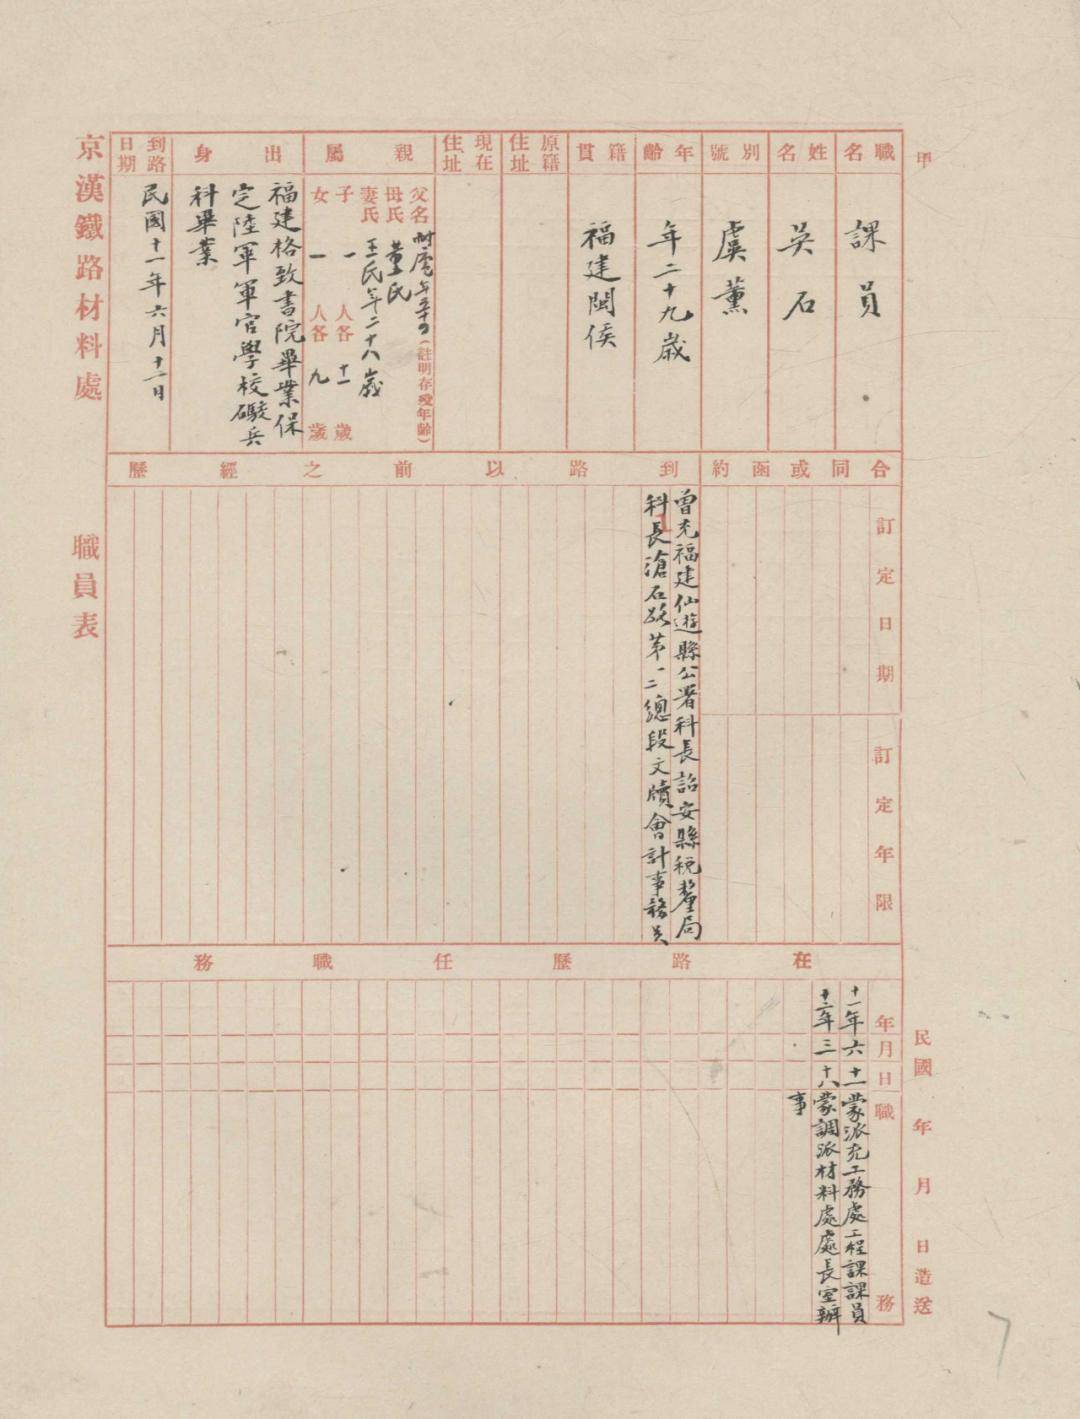 甲
職名
課員
姓名
吳石
別號
虞薰
年齡
年二十九歲
籍貫
福建閩侯
原籍住址
現在住址
親屬
父名
年五十四(註明存歿年齡)
母氏 董氏
妻氏 王氏年二十八歲
子 一 人各 十一 歲
女 一 人各 九 歲
出身
福建格致書院畢業保
定陸軍軍官學校礮兵
科畢業
到路日期
民國十一年六月十二日
合同或函約
訂定日期
訂定年限
到路以前之經歷
曾充福建仙遊縣公署科長詔安縣稅釐局
科長滄石路第一二總段文牘會計事務員
在路歷任職務
年月日職務
十一年六十一蒙派充工務處工程課課員
十二年三十八蒙調派材料處處長室辦
事
京漢鐵路材料處 職員表
民國 年 月 日造送
7